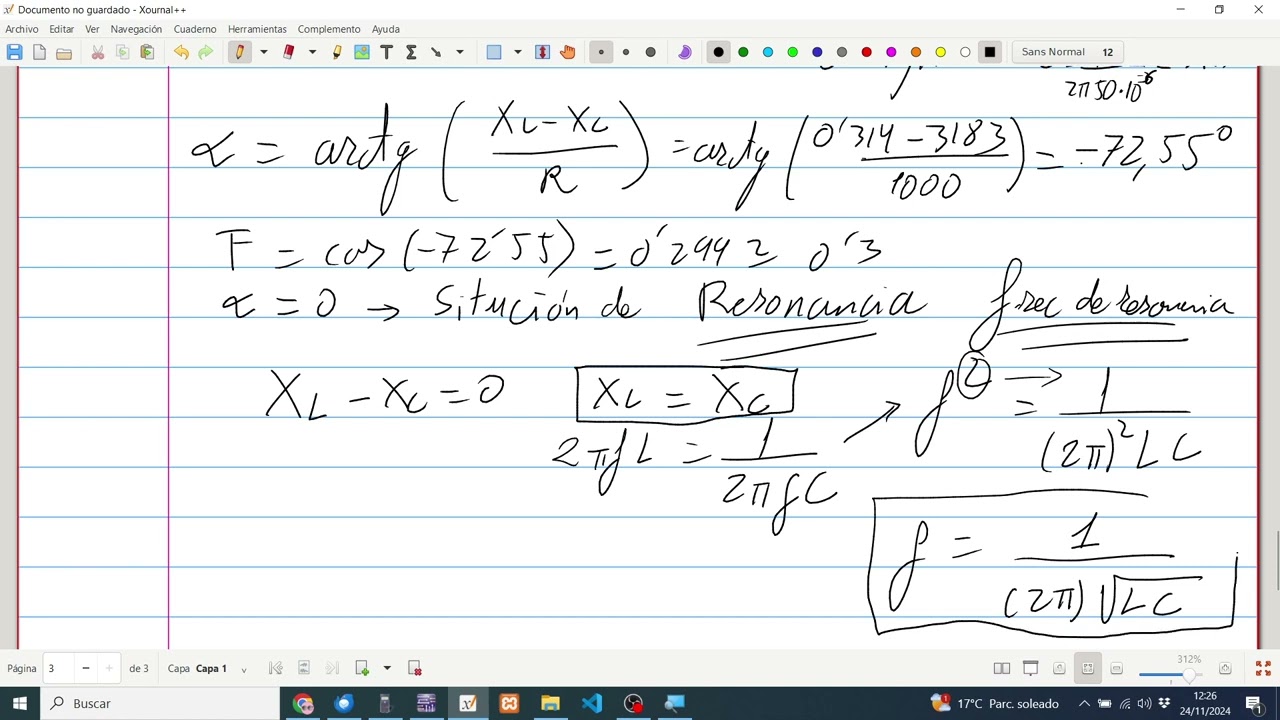 Documento no guardado - Xournal++
Archivo Editar Ver Navegación Cuaderno Herramientas Complemento Ayuda
Sans Normal 12
2π50·10⁻⁶
α = arctg (XL - XC / R) = arctg (0'314 - 3183 / 1000) = -72,55°
F = cos(-72'55) = 0'299 ≈ 0'3
α = 0 → Situción de Resonancia frec de resonancia
XL - XC = 0 XL = XC f² → = 1 / (2π)² L C
2πfL = 1 / 2πfC
f = 1 / (2π) √LC
Página 3 de 3 Capa Capa 1 312%
Buscar 17°C Parc. soleado 12:26
24/11/2024